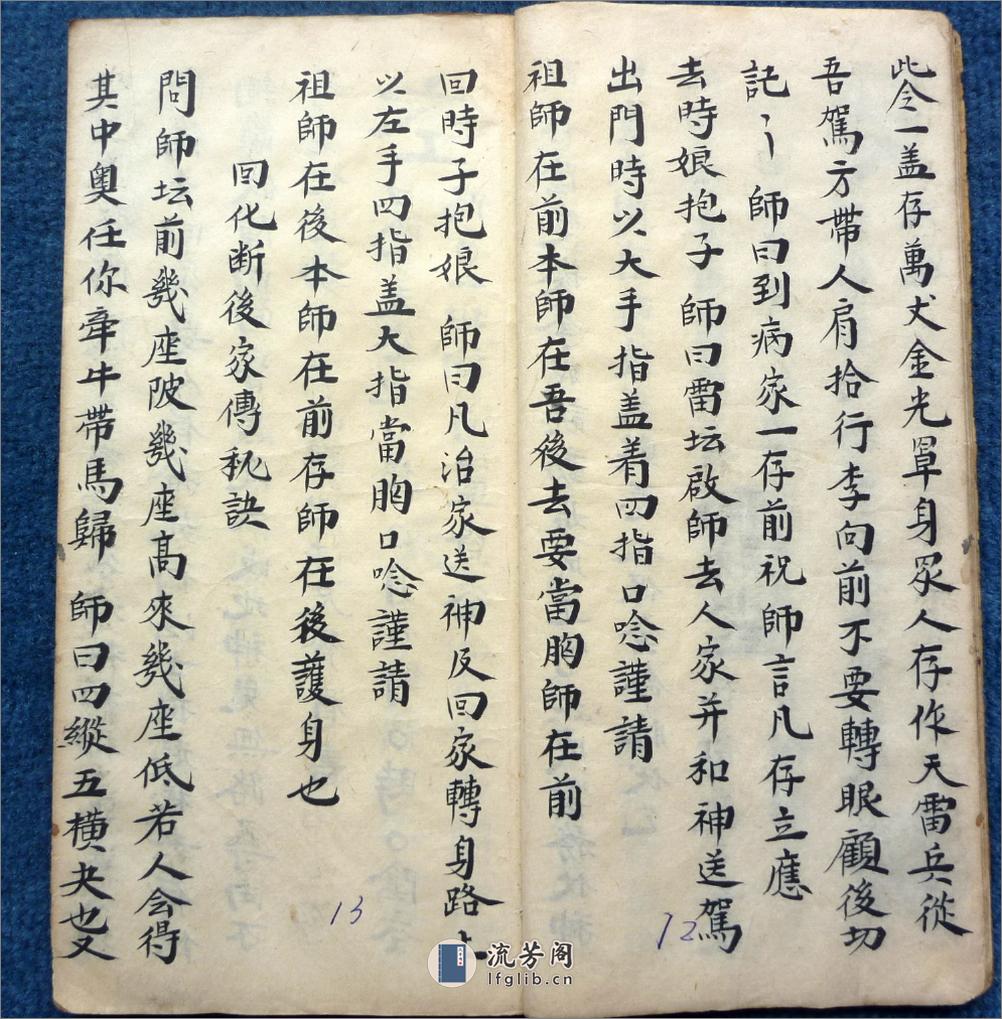 此令一盖存萬丈金光罩身眾人存作天雷兵從
吾駕方帶人肩拾行李向前不要轉眼顧後切
託〻 師曰到病家一存前祝師言凡存立應
去時娘抱子 師曰雷坛啟師去人家并和神送駕
出門時以大手指盖着四指口唸謹請
祖師在前本師在吾後去要當胸師在前
12
回時子抱娘 師曰凡治家送神反回家轉身路上
以左手四指盖大指當胸口唸謹請
祖師在後本師在前存師在後護身也
回化断後家傳秘訣
問師坛前幾座陂幾座高來幾座低若人会得
其中奥任你牵牛帶馬歸 師曰四縱五橫夬也又
13
流芳阁
lfglib.cn